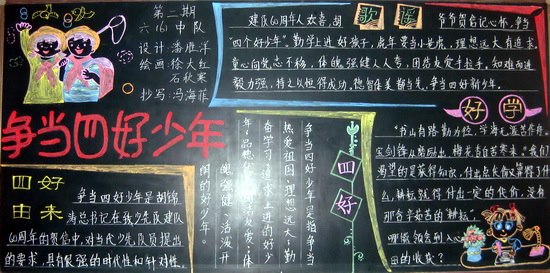 第二期
六(6)中队
设计:潘雁洋
绘画:徐大红
石秋寒
抄写:冯海菲
争当四好少年
四好
由来
争当四好少年是胡锦
涛总书记在我少先队建队
60周年的贺信中,对当代少先队员提出
的要求,具有很强的时代性和针对性。
歌谣
建队60周年人欢喜,胡
爷爷贺信记心怀,争当
“四个好少年”。勤学上进好孩子,虎年要当小老虎,理想远大有追求,
童心向党志不移,体魄强健人人夸,团结友爱手拉手,知难而进
毅力强,持之以恒得成功,德智体美都争先,争当四好新少年。
四好
争当四好少年是指争当
热爱祖国、理想远大;勤
奋学习、追求上进的好少
年;品德优良、团结友爱;体
魄强健、活泼开
朗的好少年。
好学
“书山有路勤为径,学海无涯苦作舟。
宝剑锋从磨砺出,梅花香自苦寒来。”我们
渴望的是获得知识,什么
么,耕耘就得付出一定的代价,没有
那含辛茹苦的耕耘,
哪能领会到入
田的收获?